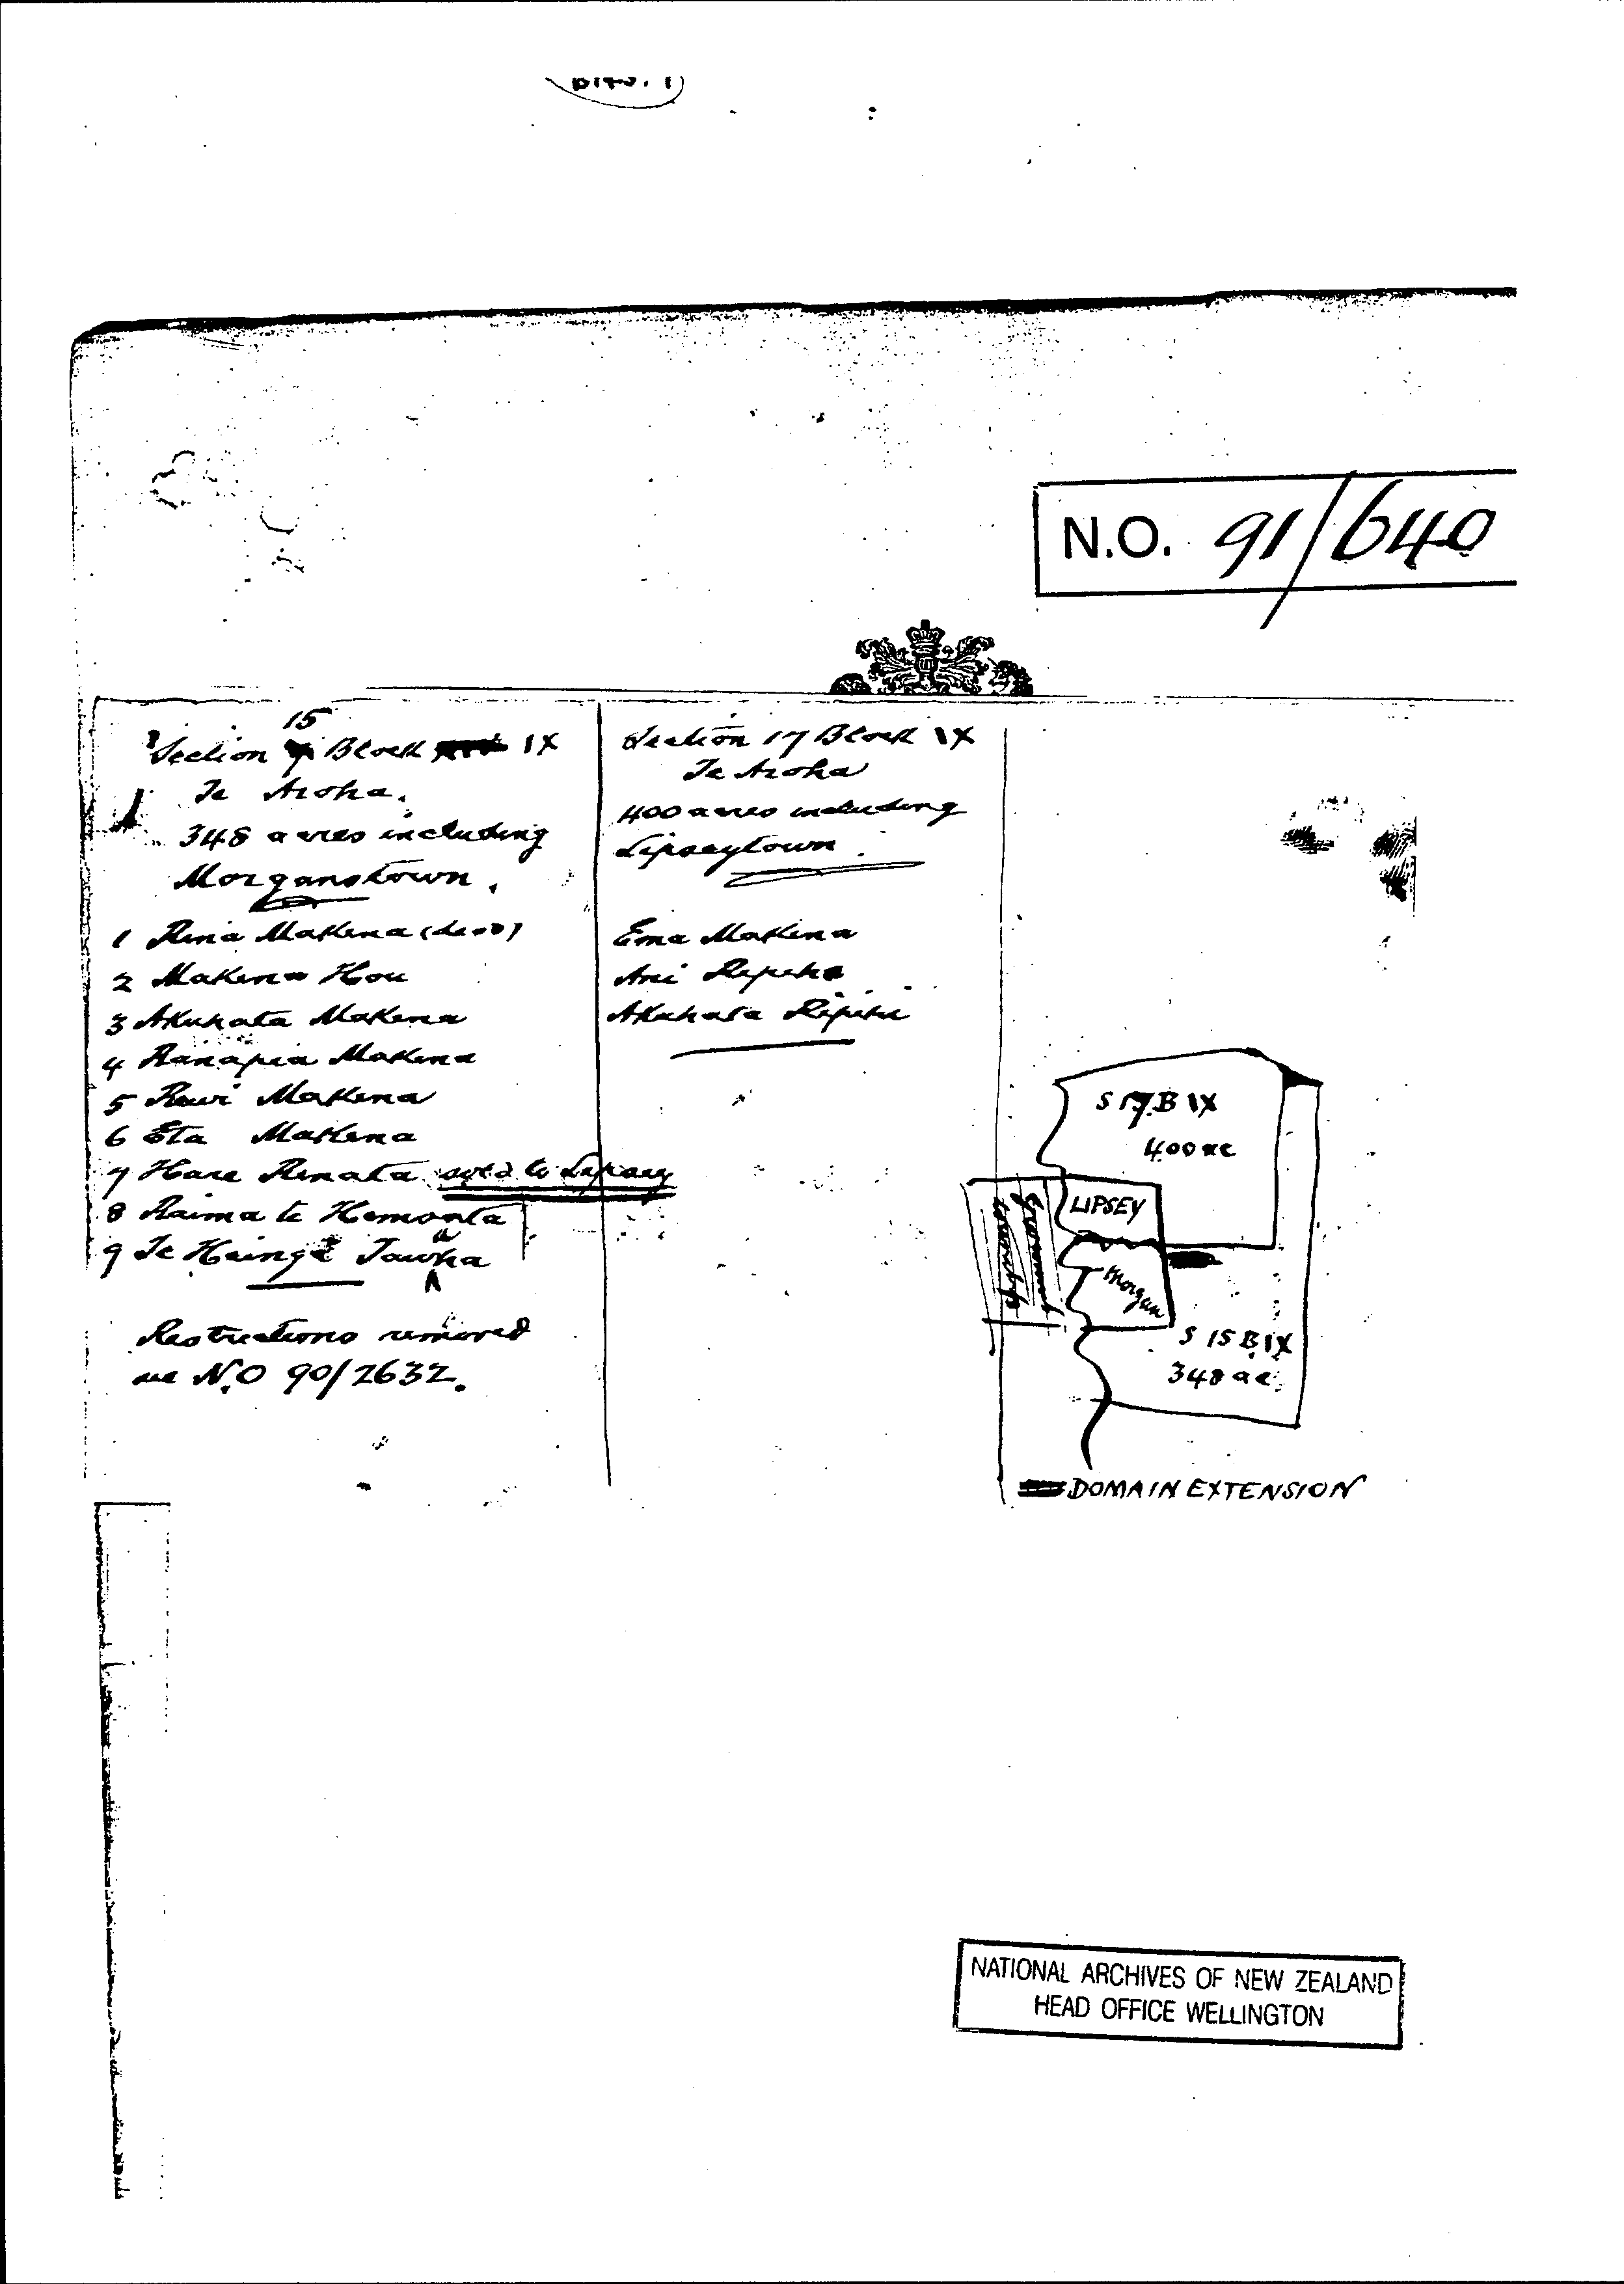 N.O. 91/640
15
Section Block IX
Te Aroha.
348 acres including
Morganstown.
1 Rina Makena (dead)
2 Makena Hou
3 Akuhata Makena
4 Ranapia Makena
5 Rewi Makena
6 Eta Makena
7 Hare Renata sold to Lipsey
8 Raima te
9 Te
Restrictions removed
see N.O 90/2632.
Section 17 Block IX
Te Aroha
400 acres including
Lipseytown
Ema Makena
Ani Ripeka
Akuhata
S 17 B IX
400 ac
LIPSEY
Government
township
Morgan
S 15 B IX
348 ac
DOMAIN EXTENSION
NATIONAL ARCHIVES OF NEW ZEALAND
HEAD OFFICE WELLINGTON